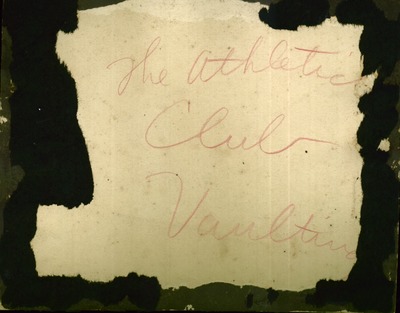 The Athletic
Club
Vaulting